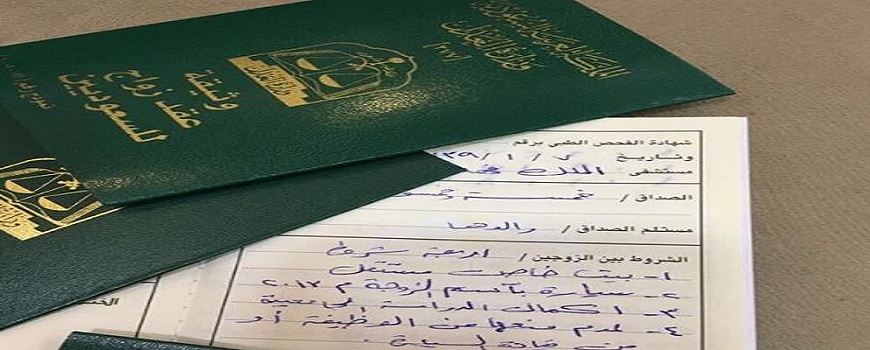 المملكة العربية السعودية
وزارة العدل
(٢١٧)
وثيقة
عقد زواج
للسعوديين
شهادة الفحص الطبي برقم
وتاريخ ٧ / ١ / ١٤٣٩
مستشفى الملك
الصداق / خمسة وخمسو
مستلم الصداق / والدها
الشروط بين الزوجين / اربعة شروط
١- بيت خاص مستقل
٢- سيارة بآسم الزوجة م ٢٠١٣
٣- اكمال الدراسة الجامعية
٤- عدم منعها من الوظيفة أو
من قيادة السيارة.